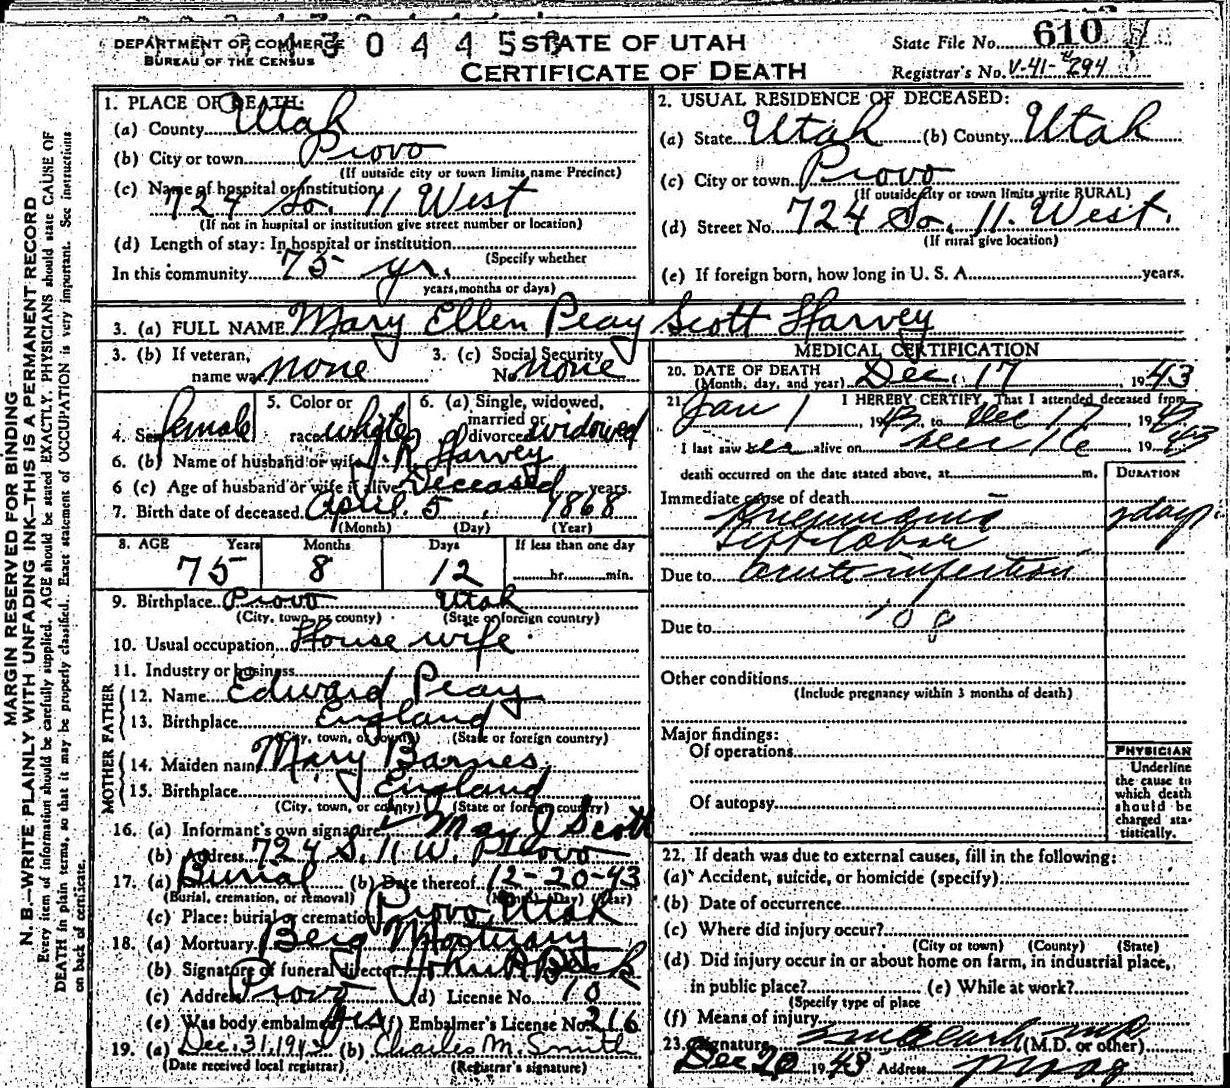 DEPARTMENT OF COMMERCE
BUREAU OF THE CENSUS
STATE OF UTAH
CERTIFICATE OF DEATH
State File No. 610
Registrar's No. V-41-294
MARGIN RESERVED FOR BINDING
N. B.—WRITE PLAINLY WITH UNFADING INK—THIS IS A PERMANENT RECORD
Every item of information should be carefully supplied. AGE should be stated EXACTLY. PHYSICIANS should state CAUSE OF
DEATH in plain terms, so that it may be properly classified. Exact statement of OCCUPATION is very important. See instructions
on back of certificate.
1. PLACE OF DEATH:
(a) County Utah
(b) City or town Provo
(If outside city or town limits name Precinct)
(c) Name of hospital or institution
724 So. 11 West
(If not in hospital or institution give street number or location)
(d) Length of stay: In hospital or institution
(Specify whether
In this community 75 yr.
years, months or days)
2. USUAL RESIDENCE OF DECEASED:
(a) State Utah (b) County Utah
(c) City or town Provo
(If outside city or town limits write RURAL)
(d) Street No. 724 So. 11. West.
(If rural give location)
(e) If foreign born, how long in U. S. A. years.
3. (a) FULL NAME Mary Ellen Peay Scott Harvey
3. (b) If veteran, name war none
3. (c) Social Security No. none
4. Sex female
5. Color or race white
6. (a) Single, widowed, married or divorced widowed
6. (b) Name of husband or wife J. R. Harvey
6 (c) Age of husband or wife if alive Deceased years
7. Birth date of deceased April 5, 1868
(Month) (Day) (Year)
8. AGE Years Months Days If less than one day
75 8 12 hr. min.
9. Birthplace Provo Utah
(City, town, or county) (State or foreign country)
10. Usual occupation House wife
11. Industry or business
FATHER
12. Name Edward Peay
13. Birthplace England
(City, town, or county) (State or foreign country)
MOTHER
14. Maiden name Mary Barnes
15. Birthplace England
(City, town, or county) (State or foreign country)
16. (a) Informant's own signature May J Scott
(b) Address 724 S. 11 W. Provo
17. (a) Burial (b) Date thereof 12-20-43
(Burial, cremation, or removal) (Month) (Day) (Year)
(c) Place: burial or cremation Provo, Utah
18. (a) Mortuary Berg Mortuary
(b) Signature of funeral director
(c) Address Provo (d) License No. 10
(e) Was body embalmed yes (f) Embalmer's License No. 216
19. (a) Dec. 31, 1943 (b) Charles M. Smith
(Date received local registrar) (Registrar's signature)
MEDICAL CERTIFICATION
20. DATE OF DEATH
(Month, day, and year) Dec. 17 1943
21. I HEREBY CERTIFY, That I attended deceased from
Jan 1, 1943 to Dec 17 1943
I last saw her alive on Dec 16 1943
death occurred on the date stated above, at m.
DURATION
Immediate cause of death
Pneumonia 2 days
Left lobar
Due to acute infection
108
Due to
Other conditions
(Include pregnancy within 3 months of death)
Major findings:
Of operations
Of autopsy
PHYSICIAN
Underline
the cause to
which death
should be
charged sta-
tistically.
22. If death was due to external causes, fill in the following:
(a) Accident, suicide, or homicide (specify)
(b) Date of occurrence
(c) Where did injury occur?
(City or town) (County) (State)
(d) Did injury occur in or about home on farm, in industrial place,
in public place? (e) While at work?
(Specify type of place
(f) Means of injury
23. Signature (M.D. or other)
Dec 20 1943 Address Provo